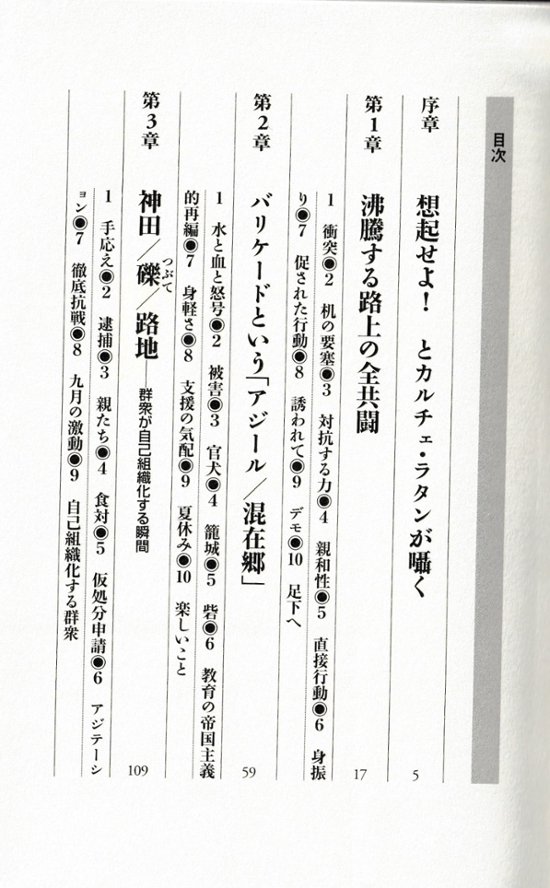 目次
序章 想起せよ! とカルチェ・ラタンが囁く 5
第1章 沸騰する路上の全共闘 17
1 衝突◉2 机の要塞◉3 対抗する力◉4 親和性◉5 直接行動◉6 身振
り◉7 促された行動◉8 誘われて◉9 デモ◉10 足下へ
第2章 バリケードという「アジール/混在郷」 59
1 水と血と怒号◉2 被害◉3 官犬◉4 籠城◉5 砦◉6 教育の帝国主義
的再編◉7 身軽さ◉8 支援の気配◉9 夏休み◉10 楽しいこと
第3章 神田/礫/路地 群衆が自己組織化する瞬間 109
つぶて
1 手応え◉2 逮捕◉3 親たち◉4 食対◉5 仮処分申請◉6 アジテーシ
ョン◉7 徹底抗戦◉8 九月の激動◉9 自己組織化する群衆